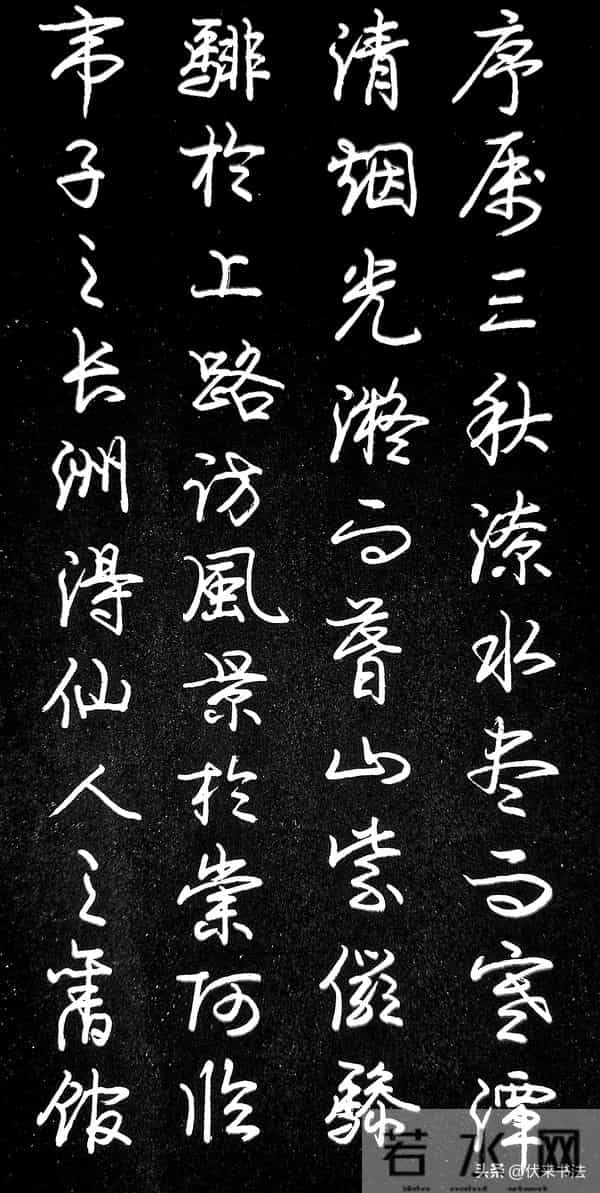 序属三秋潦水尽而寒潭
清烟光凝而暮山紫儼驂
騑於上路访風景於崇阿临
帝子之长洲得仙人之舊馆
若水网
头条 @伏来书法